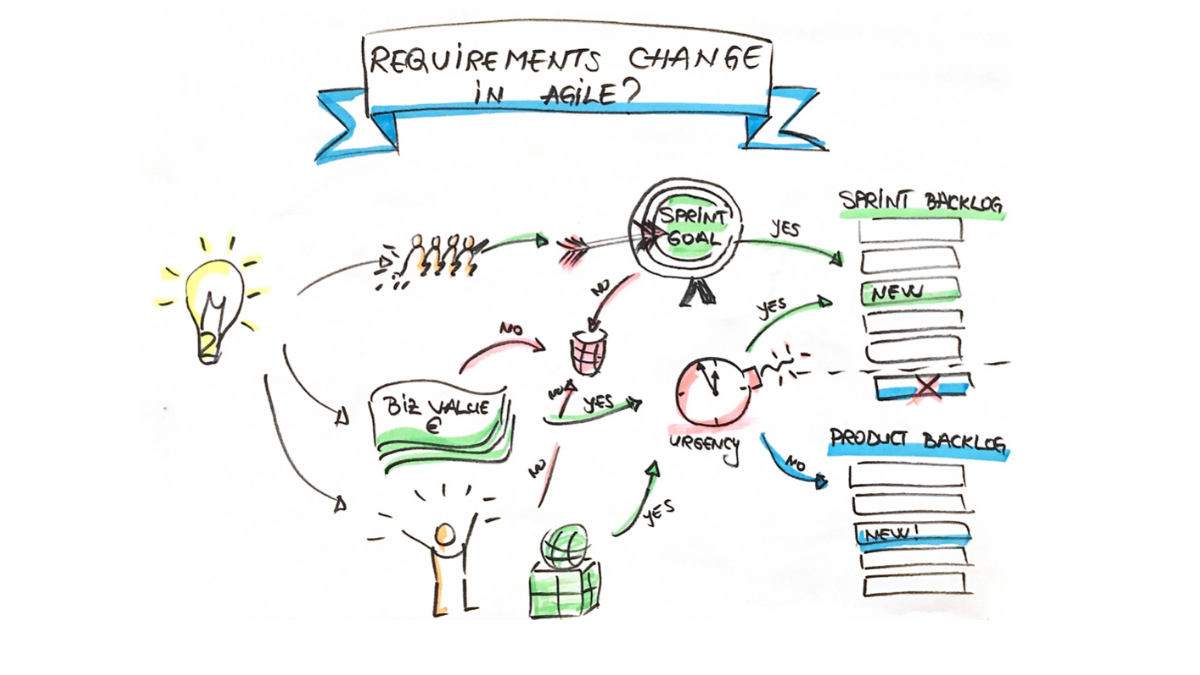 REQUIREMENTS CHANGE
IN AGILE?
SPRINT
GOAL
YES
SPRINT BACKLOG
NO
NEW
YES
NO
BIZ VALUE
€
NO
YES
URGENCY
PRODUCT BACKLOG
NO
NO
YES
NEW!